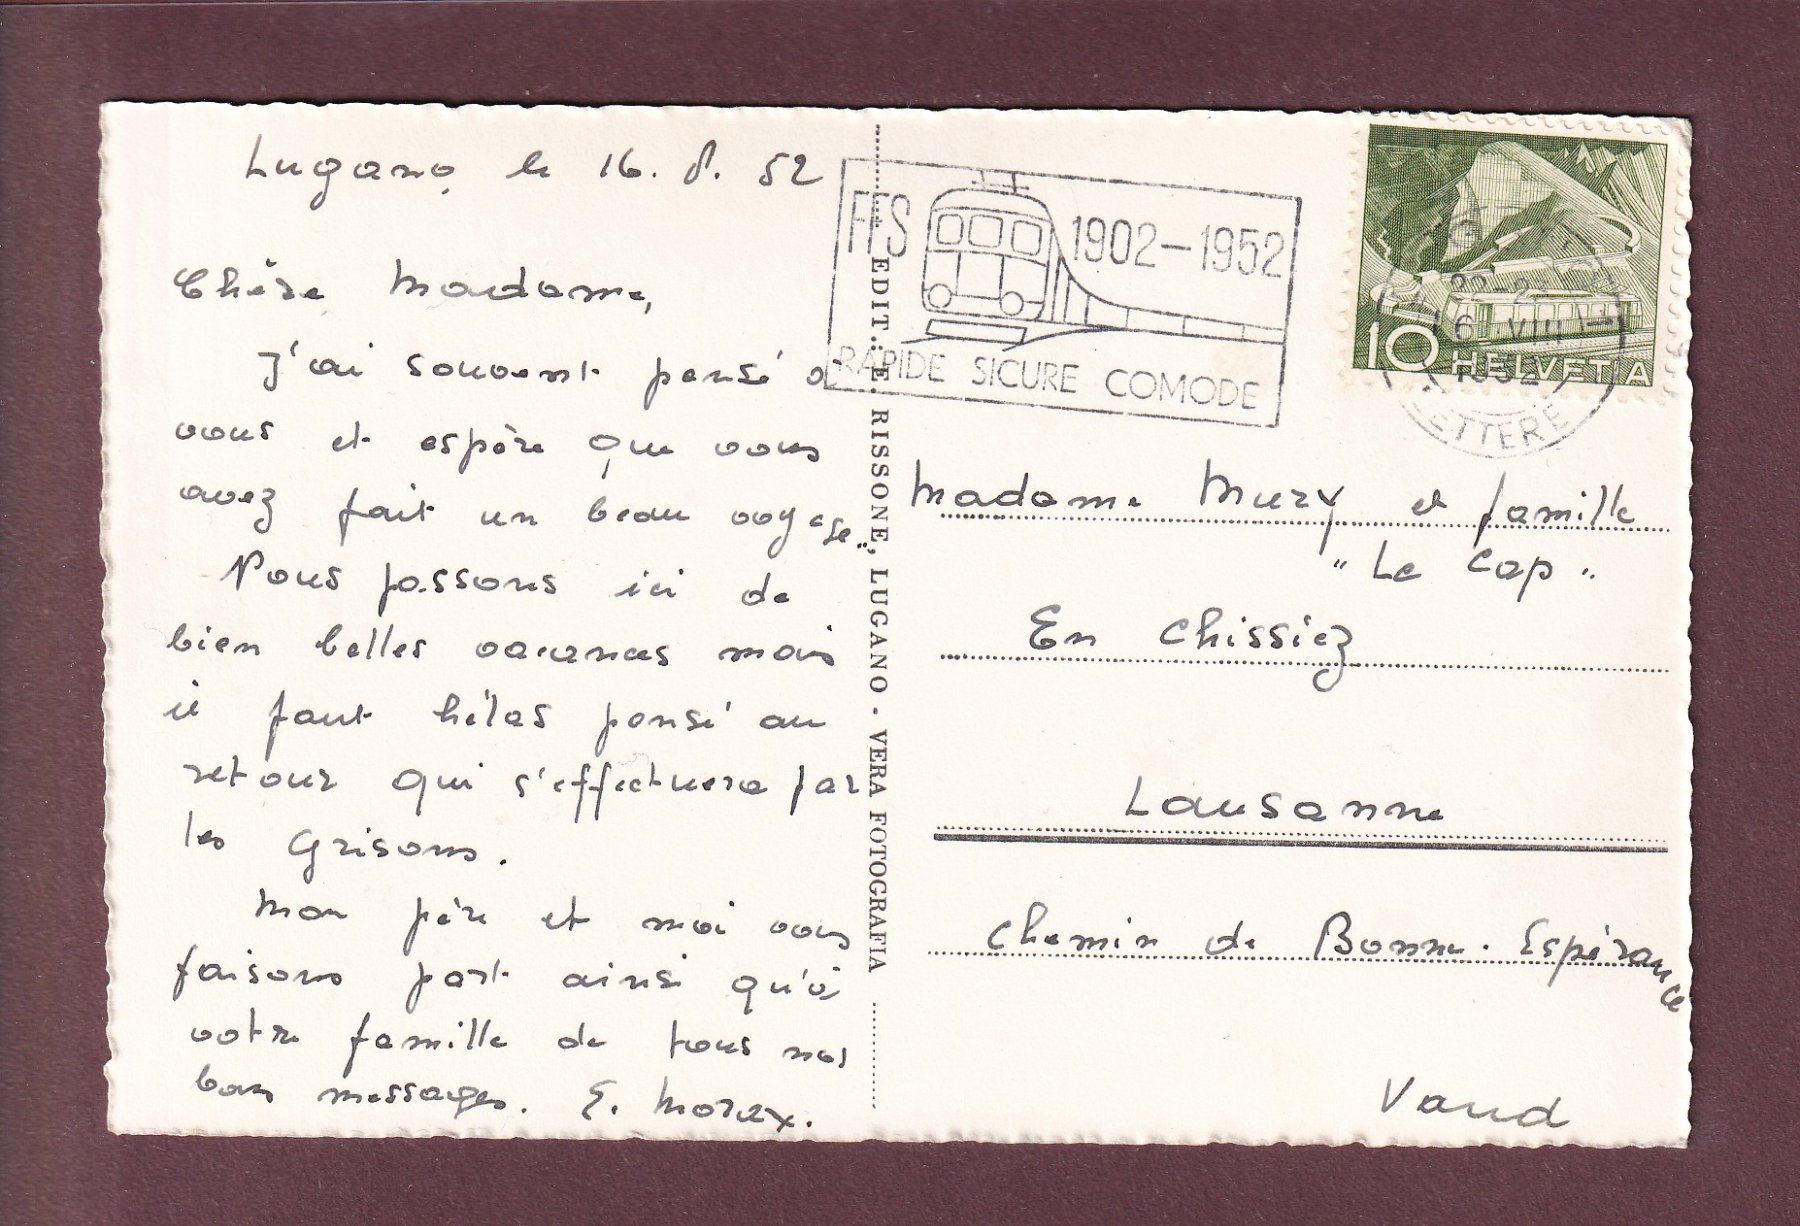 Lugano, le 16. 8. 52
Chère Madame,
J'ai souvent pensé à
vous et espère que vous
avez fait un beau voyage.
Nous passons ici de
bien belles vacances mais
il faut hélas pensé au
retour qui s'effectuera par
les Grisons.
Mon père et moi vous
faisons part ainsi qu'à
votre famille de tous nos
bons messages. E. Morax.
EDIT.: E. RISSONE, LUGANO - VERA FOTOGRAFIA
FFS 1902-1952
RAPIDE SICURE COMODE
10 HELVETIA
VIII
1952
LETTERE
Madame Mury et famille
"Le Cap"
En Chissiez
Lausanne
Chemin de Bonne-Espérance
Vaud